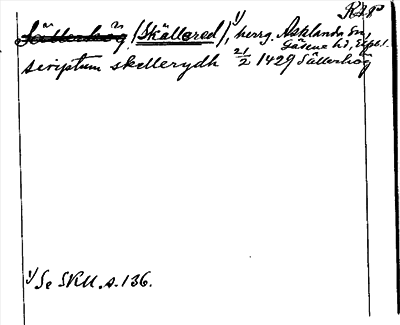 RAp
Sätterhög (Skällered), 1) herrg. Asklanda sn,
Gäsene hd, Älvsbl.
scriptum skellerydh 21/2 1429 Sätterhög
1) Se SKU. s. 136.